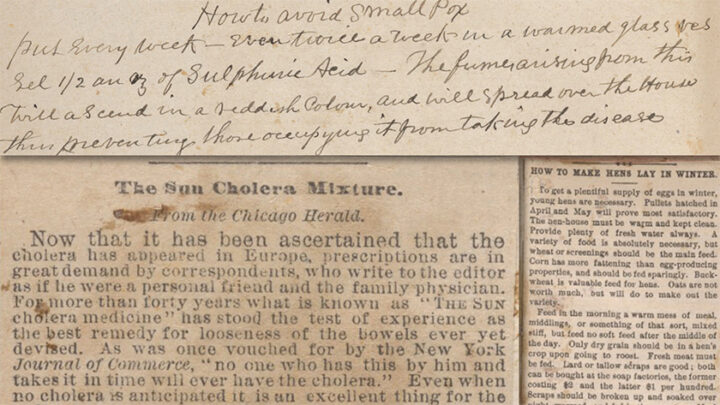 How to avoid Small Pox
Put Every week — Even twice a week in a warmed glass ves
sel 1/2 an oz of Sulphuric Acid — The fumes arising from this
will ascend in a reddish Colour, and will spread over the House
thus preventing those occupying it from taking the disease
The Sun Cholera Mixture.
From the Chicago Herald.
Now that it has been ascertained that the
cholera has appeared in Europe, prescriptions are in
great demand by correspondents, who write to the editor
as if he were a personal friend and the family physician.
For more than forty years what is known as "THE SUN
cholera medicine" has stood the test of experience as
the best remedy for looseness of the bowels ever yet
devised. As was once vouched for by the New York
Journal of Commerce, "no one who has this by him and
takes it in time will ever have the cholera." Even when
no cholera is anticipated it is an excellent thing for the
HOW TO MAKE HENS LAY IN WINTER.
To get a plentiful supply of eggs in winter,
young hens are necessary. Pullets hatched in
April and May will prove most satisfactory.
The hen-house must be warm and kept clean.
Provide plenty of fresh water always. A
variety of food is absolutely necessary, but
wheat or screenings should be the main feed.
Corn has more fattening than egg-producing
properties, and should be fed sparingly. Buck-
wheat is valuable feed for hens. Oats are not
worth much, but will do to make out the
variety.
Feed in the morning a warm mess of meal,
middlings, or something of that sort, mixed
stiff, but feed no soft feed after the middle of
the day. Only dry grain should be in a hen's
crop upon going to roost. Fresh meat must
be fed. Lard or tallow scraps are good; both
can be bought at the soap factories, the former
costing $2 and the latter $1 per hundred.
Scraps should be broken up and soaked over